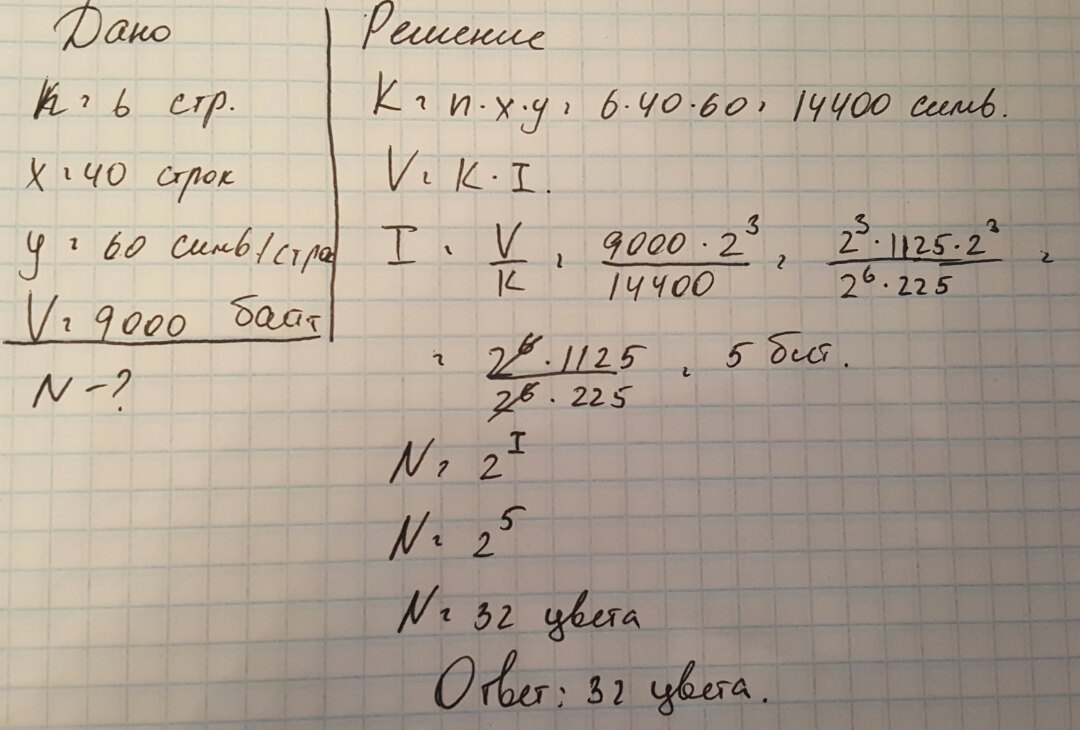 Дано
k = 6 стр.
x = 40 строк
y = 60 симв/стро
V = 9000 байт
N - ?
Решение
K = n · x · y = 6 · 40 · 60 = 14400 симв.
V = K · I.
I = V/K = 9000 · 2³ / 14400 = 2³ · 1125 · 2³ / 2⁶ · 225 =
= 2⁶ · 1125 / 2⁶ · 225 = 5 бит.
N = 2ᴵ
N = 2⁵
N = 32 цвета
Ответ: 32 цвета.